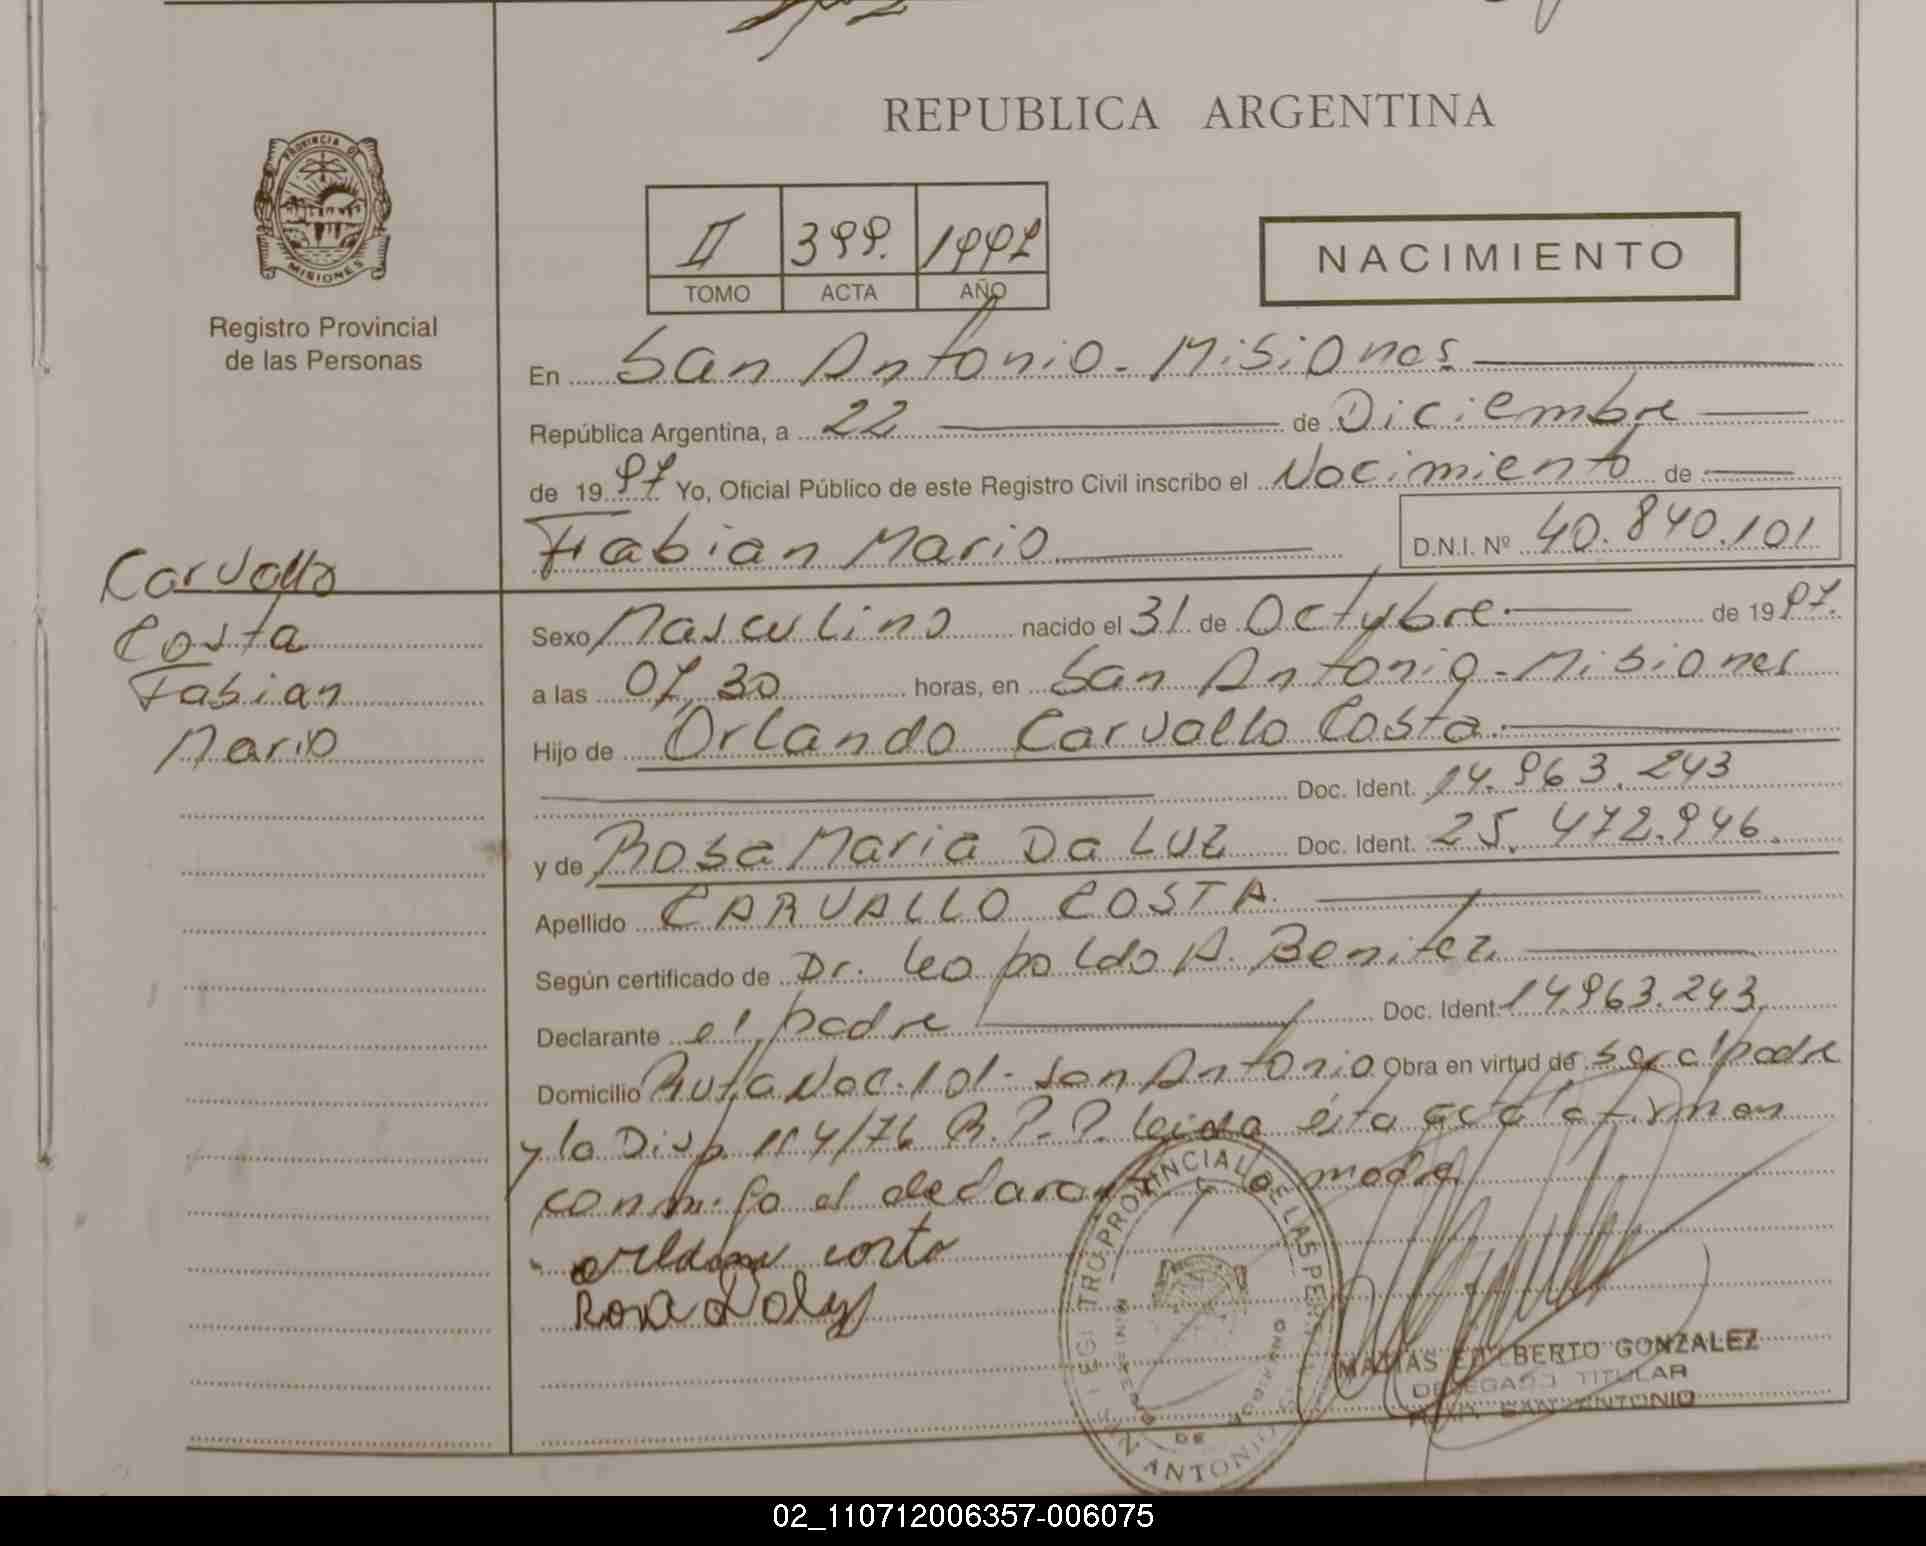 REPUBLICA ARGENTINA
PROVINCIA DE
MISIONES
Registro Provincial
de las Personas
II 399. 1997
TOMO ACTA AÑO
NACIMIENTO
En San Antonio - Misiones
República Argentina, a 22 de Diciembre
de 1997 Yo, Oficial Público de este Registro Civil inscribo el Nacimiento de
Fabian Mario D.N.I. Nº 40.840.101
Carvallo
Costa
Fabian
Mario
Sexo Masculino nacido el 31 de Octubre de 1997.
a las 07,30 horas, en San Antonio - Misiones
Hijo de Orlando Carvallo Costa
Doc. Ident. 14.963.243
y de Rosa Maria Da Luz Doc. Ident. 25.472.946.
Apellido CARVALLO COSTA
Según certificado de Dr. Leopoldo A. Benitez
Declarante el padre Doc. Ident. 14963.243
Domicilio Ruta Nac. 101 - San Antonio Obra en virtud de ser el padre
y la Disp. 114/76 R.P.P. leida ésta acta firman
conmigo el declarante y la madre
costa
Rosa
REGISTRO PROVINCIAL DE LAS PERSONAS
SAN ANTONIO
MATIAS EDILBERTO GONZALEZ
DELEGADO TITULAR
SAN ANTONIO
02_110712006357-006075